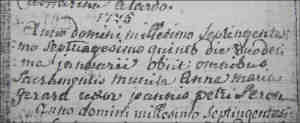 Catharina
1775
Anno domini millesimo septingentesi=
mo septuagesimo quinto die duodeci
ma januarii obiit omnibus
Sacramentis munita Anna maria
gerard uxor joannis petri Peron
Anno domini millesimo septingentesi